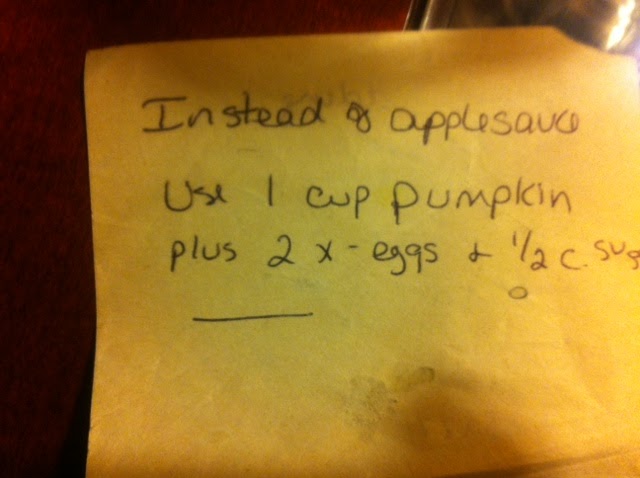 Instead of applesauce
Use 1 cup pumpkin
plus 2 x-eggs & 1/2 c. sug